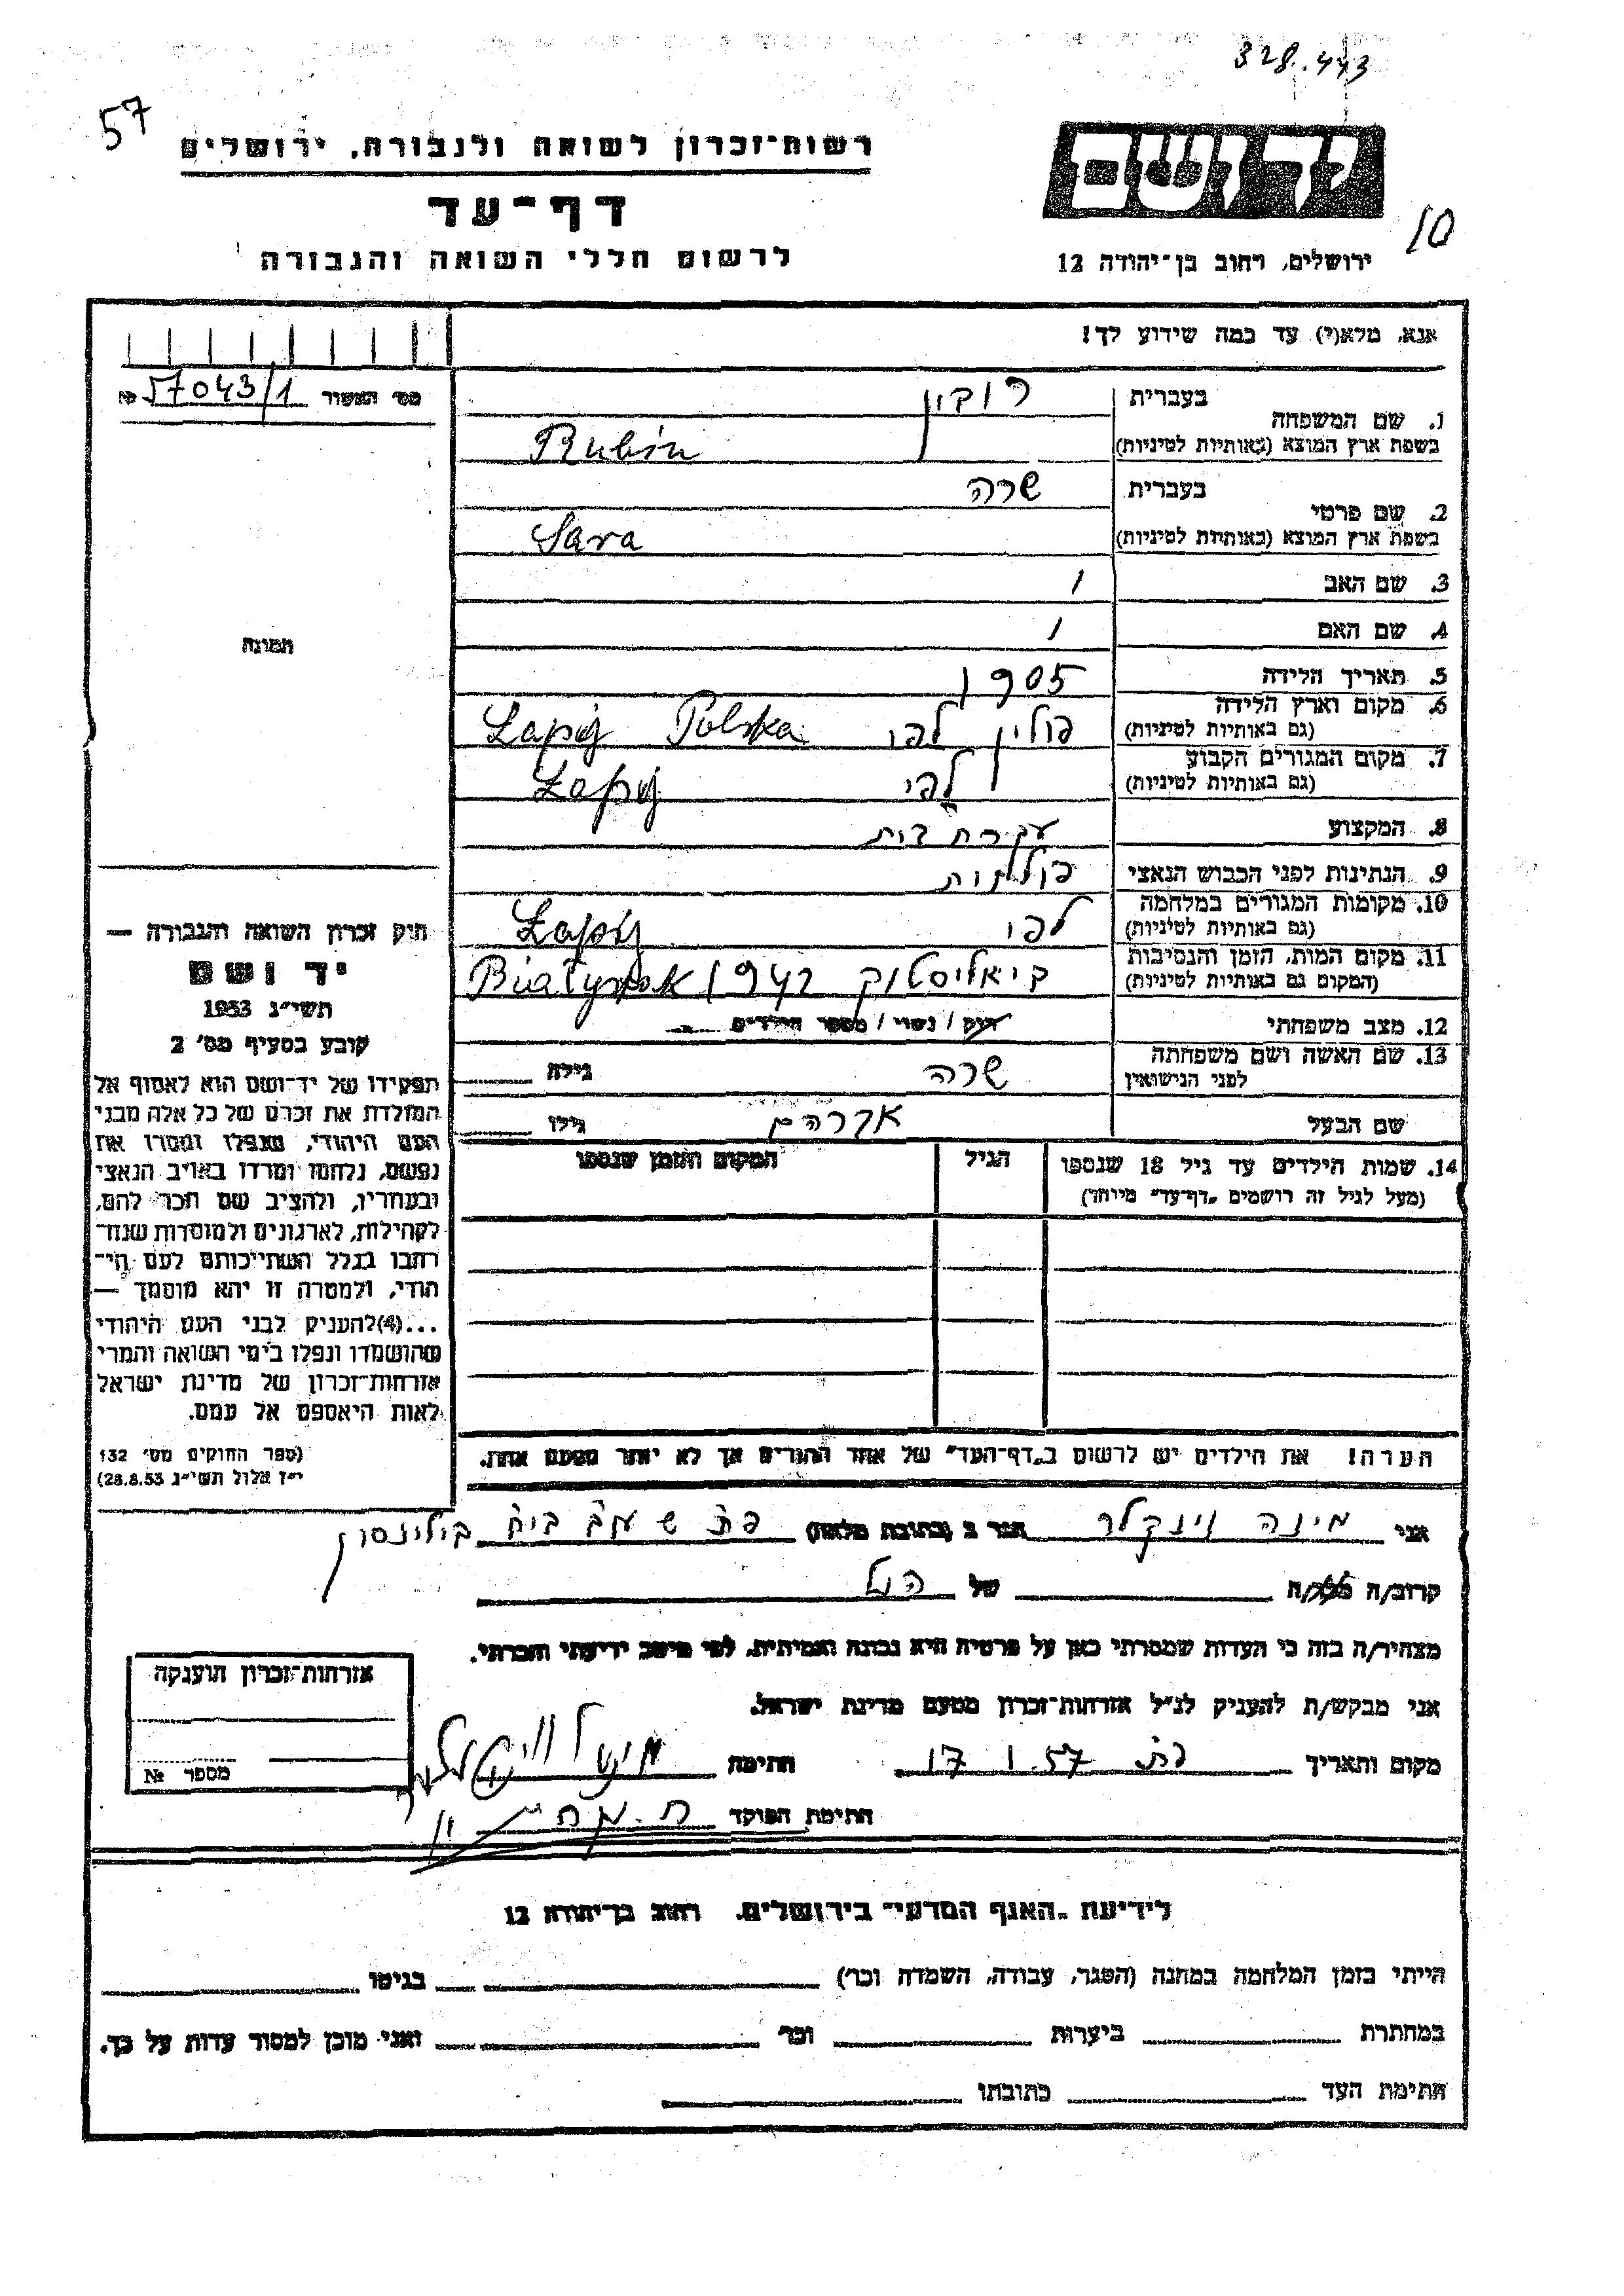 328.443
57
רשות־זכרון לשואה ולגבורה, ירושלים
דף־עד
לרשום חללי השואה והגבורה
יד ושם
ירושלים, רחוב בן־יהודה 12
10
אנא, מלא(י) עד כמה שידוע לך!
מס' האשור 57043/1 №
1. שם המשפחה בעברית רובין
בשפת ארץ המוצא (באותיות לטיניות) Rubin
2. שם פרטי בעברית שרה
בשפת ארץ המוצא (באותיות לטיניות) Sara
3. שם האב /
4. שם האם /
5. תאריך הלידה 1905
6. מקום וארץ הלידה (גם באותיות לטיניות) פולין לפי Polska Łapij
7. מקום המגורים הקבוע (גם באותיות לטיניות) לפי Łapij
8. המקצוע עקרת בית
9. הנתינות לפני הכבוש הנאצי פולנית
10. מקומות המגורים במלחמה (גם באותיות לטיניות) לפי Łapij
11. מקום המות, הזמן והנסיבות (המקום גם באותיות לטיניות) ביאליסטוק 1942 Białystok
12. מצב משפחתי רווק / נשוי / מספר הילדים
13. שם האשה ושם משפחתה לפני הנישואין שרה גילה
שם הבעל אברהם גילו
14. שמות הילדים עד גיל 18 שנספו (מעל לגיל זה רושמים „דף־עד" מיוחד)
הגיל
המקום והזמן שנספו
הערה! את הילדים יש לרשום ב„דף־העד" של אחד ההורים אך לא יותר מפעם אחת.
תמונה
חוק זכרון השואה והגבורה —
יד ושם
תשי"ג 1953
קובע בסעיף מס' 2
תפקידו של יד־ושם הוא לאסוף אל
המולדת את זכרם של כל אלה מבני
העם היהודי, שנפלו ומסרו את
נפשם, נלחמו ומרדו באויב הנאצי
ובעוזריו, ולהציב שם וזכר להם,
לקהילות, לארגונים ולמוסדות שנח־
רבו בגלל השתייכותם לעם הי־
הודי, ולמטרה זו יהא מוסמך —
...(4)להעניק לבני העם היהודי
שהושמדו ונפלו בימי השואה והמרי
אזרחות־זכרון של מדינת ישראל
לאות היאספם אל עמם.
(ספר החוקים מס' 132
י"ז אלול תשי"ג 28.8.53)
אני מינה וינקלר הגר ב (כתובת מלאה) פת ביח בילינסון
קרוב/ה מכר/ה של הנ"ל
מצהיר/ה בזה כי העדות שמסרתי כאן על פרטיה היא נכונה ואמיתית, לפי מיטב ידיעתי והכרתי.
אני מבקש/ת להעניק לנ"ל אזרחות־זכרון מטעם מדינת ישראל.
מקום ותאריך פת 17 1.57 חתימה
חתימת הפוקד
אזרחות־זכרון הוענקה
מספר №
לידיעת „האגף המדעי" בירושלים, רחוב בן־יהודה 12
הייתי בזמן המלחמה במחנה (הסגר, עבודה, השמדה וכו') בגיטו
במחתרת ביערות וכו' ואני מוכן למסור עדות על כך.
חתימת העד כתובתו